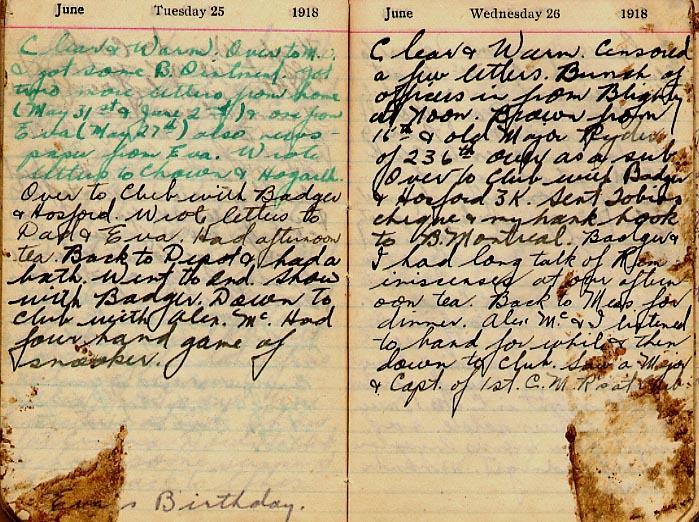 June Tuesday 25 1918
Clear & Warm. Over to M.
& got some B. Ointment. Got
two more letters from home
(May 31st & June 2nd) & one from
Eva (May 27th) also news-
paper from Eva. Wrote
letters to Chown & Hogarth.
Over to Club with Badger
& Hosford. Wrote letters to
Dad & Eva. Had afternoon
tea. Back to Depot & had a
bath. Went to 2nd. Show
with Badger. Down to
Club with Alex. Mc. Had
four hand game of
snooker.
Eva's Birthday.
June Wednesday 26 1918
Clear & Warm. Censored
a few letters. Bunch of
officers in from Blighty
at Noon. Brown from
16th & old Major Ryder
of 236th over as a sub.
Over to Club with Badger
& Hosford 3K. Sent Tobin
cheque & my bank book
to B. Montreal. Badger &
I had long talk of Rem
iniscenses at our aftern
oon tea. Back to Mess for
dinner. Alex Mc & I listened
to band for while & then
down to Club. Saw a Major
& Capt. of 1st. C.M.R. at Club